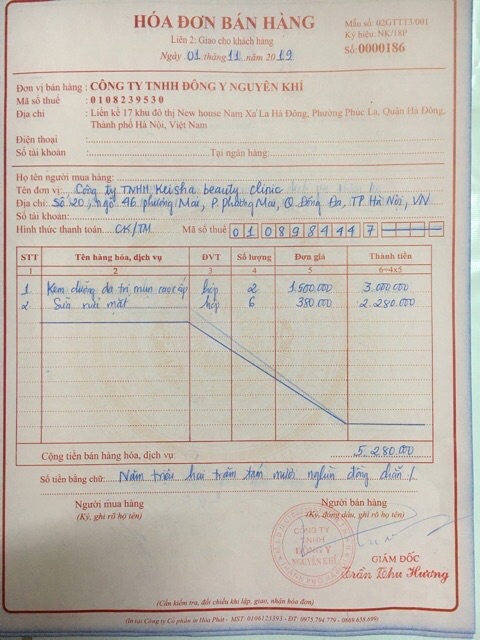 HÓA ĐƠN BÁN HÀNG
Liên 2: Giao cho khách hàng
Ngày 01 tháng 11 năm 2019
Mẫu số: 02GTTT3/001
Ký hiệu: NK/18P
Số: 0000186
Đơn vị bán hàng : CÔNG TY TNHH ĐÔNG Y NGUYÊN KHÍ
Mã số thuế : 0108239530
Địa chỉ : Liền kề 17 khu đô thị New house Nam Xa La Hà Đông, Phường Phúc La, Quận Hà Đông,
Thành phố Hà Nội, Việt Nam
Điện thoại :
Số tài khoản : Tại ngân hàng:
Họ tên người mua hàng:
Tên đơn vị: Công ty TNHH Keisha beauty clinic
Địa chỉ: Số 20, ngõ 46 phương Mai, P. phương Mai, Q. Đống Đa, TP Hà Nội, VN
Số tài khoản:
Hình thức thanh toán: CK/TM Mã số thuế: 0108984447
STT Tên hàng hóa, dịch vụ ĐVT Số lượng Đơn giá Thành tiền
1 2 3 4 5 6=4x5
1. Kem dưỡng da trị mụn cao cấp hộp 2 1.500.000 3.000.000
2. Sữa rửa mặt hộp 6 380.000 2.280.000
Cộng tiền bán hàng hóa, dịch vụ: 5.280.000
Số tiền bằng chữ: Năm triệu hai trăm tám mươi nghìn đồng chẵn /
Người mua hàng Người bán hàng
(Ký, ghi rõ họ tên) (Ký, đóng dấu, ghi rõ họ tên)
CÔNG TY
TNHH
ĐÔNG Y
NGUYÊN KHÍ
GIÁM ĐỐC
Trần Thu Hương
(Cần kiểm tra, đối chiếu khi lập, giao, nhận hóa đơn)
(In tại Công ty Cổ phần in Hòa Phát - MST: 0106123393 - ĐT: 0975.794.779 - 0869.658.699)